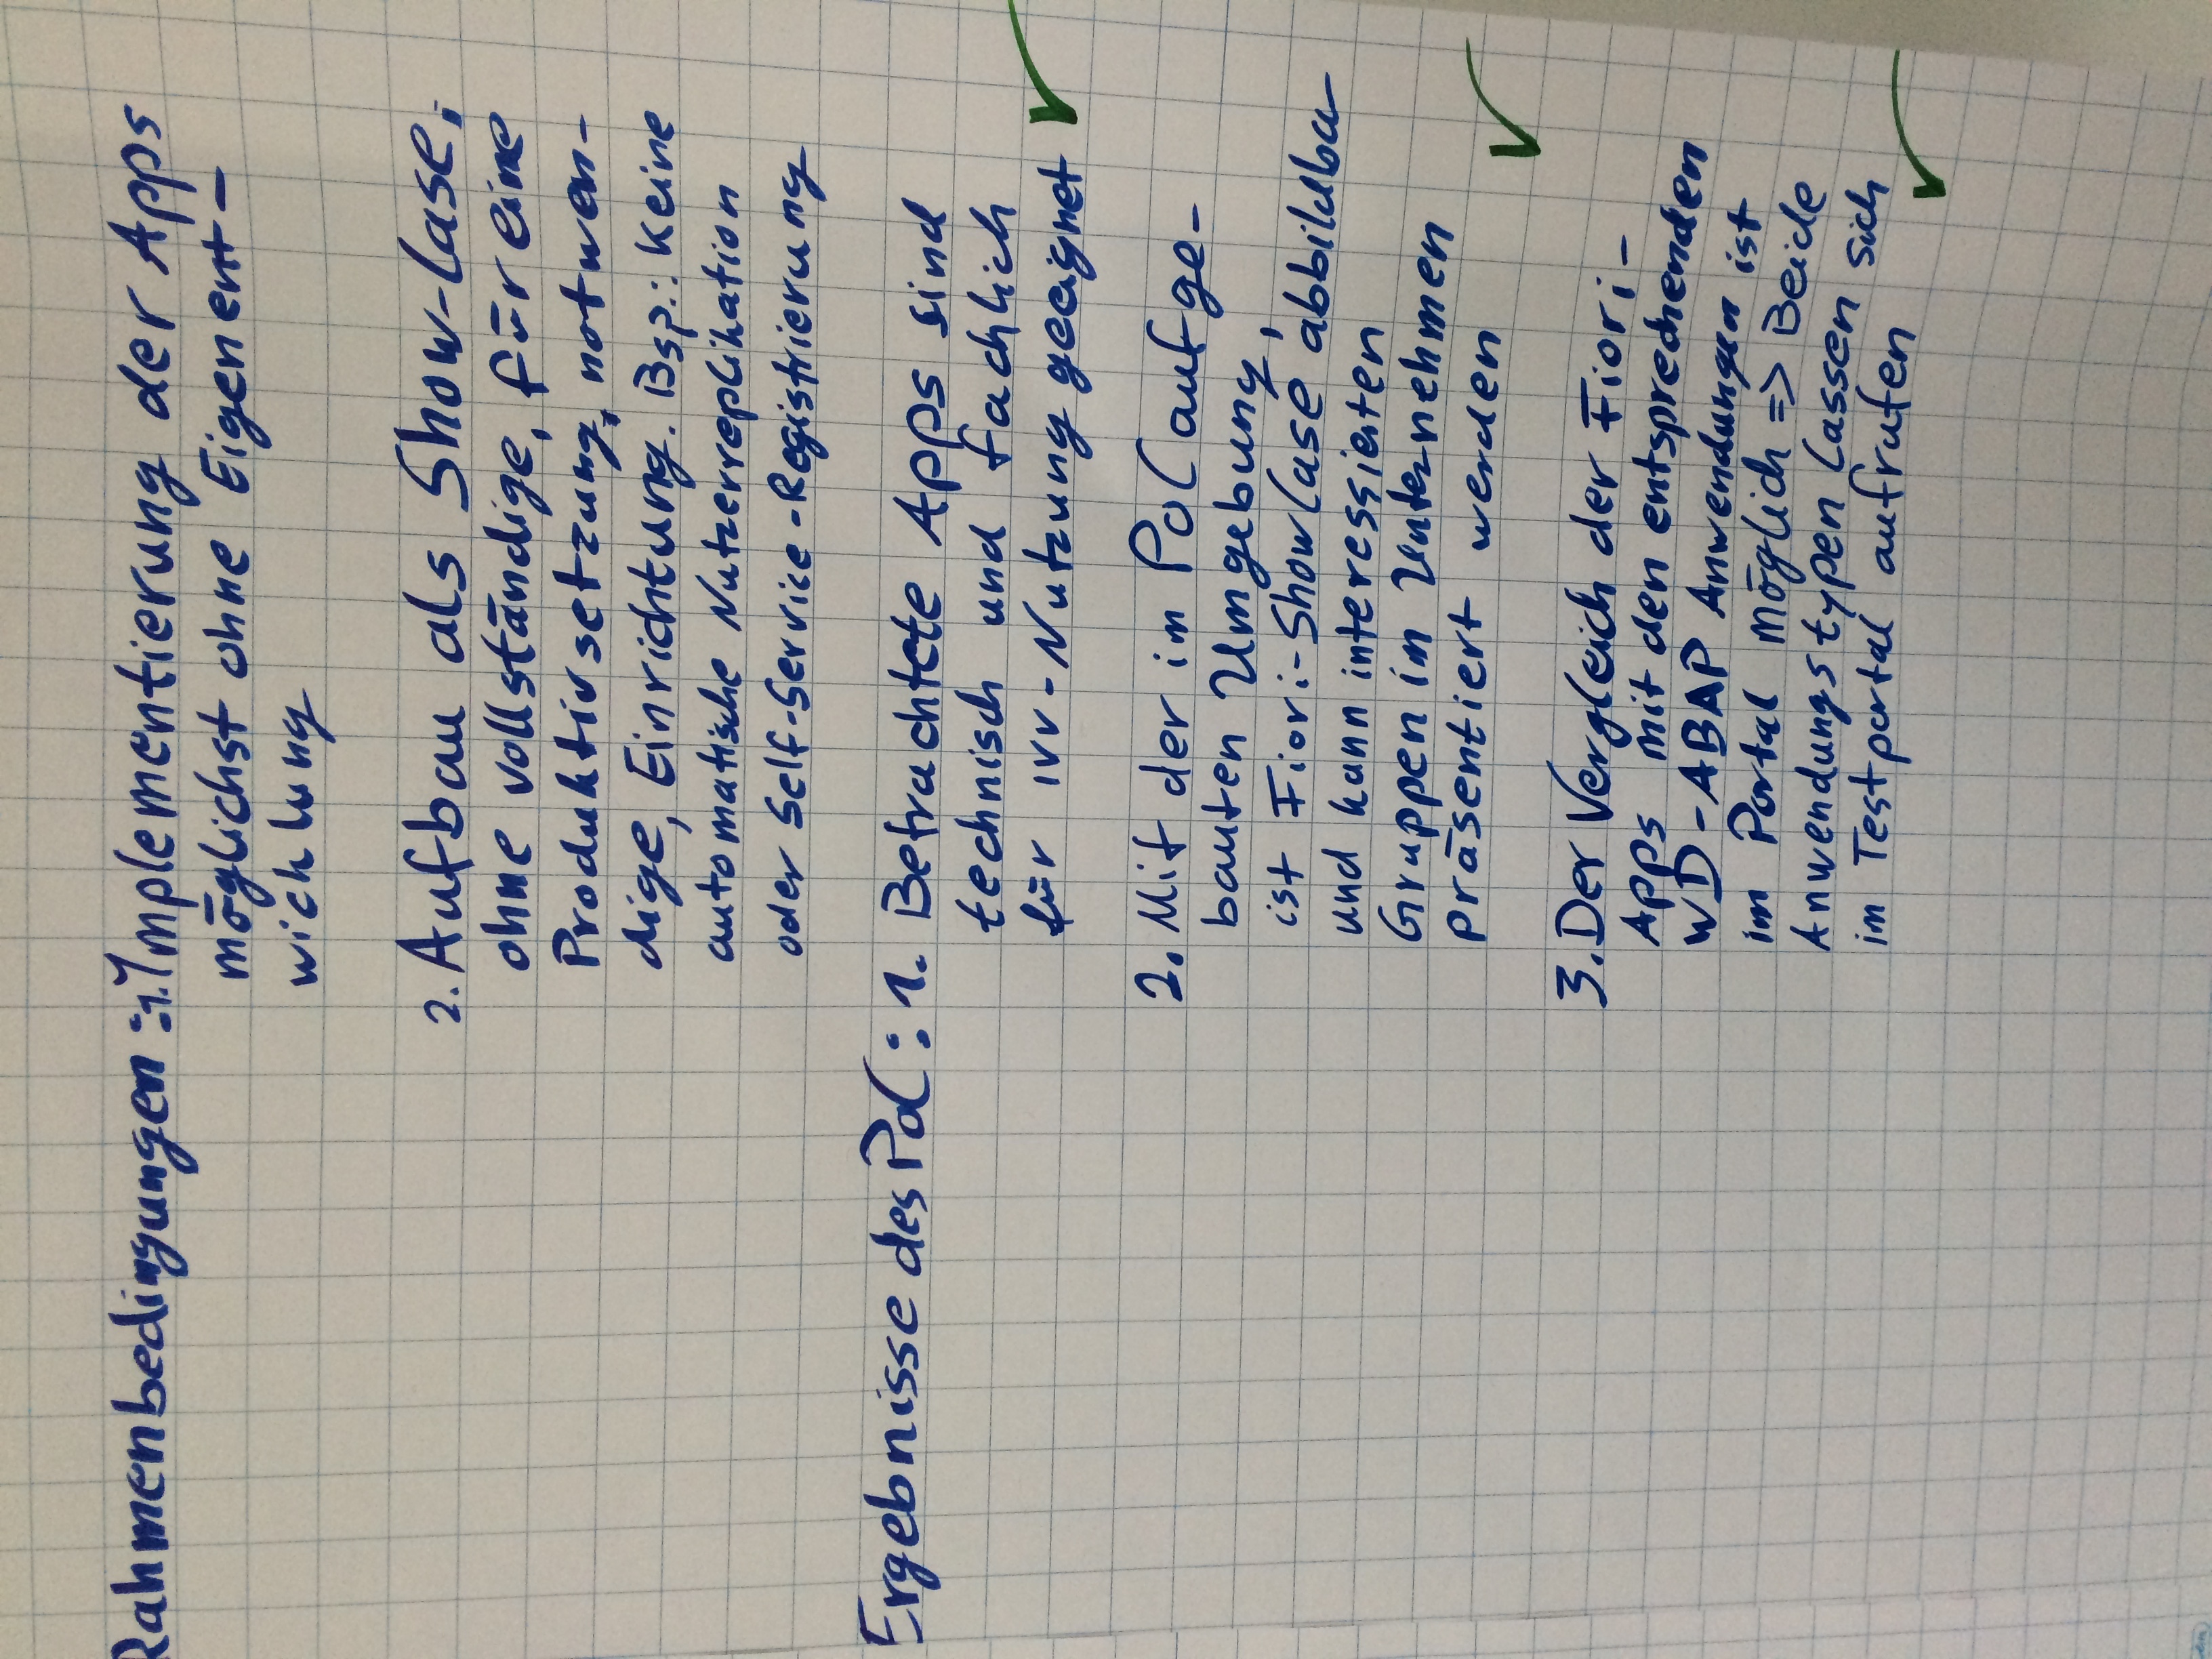 Rahmenbedingungen: 1. Implementierung der Apps
möglichst ohne Eigenent-
wicklung
2. Aufbau als Show-Case,
ohne vollständige, für eine
Produktivsetzung, notwen-
dige, Einrichtung. Bsp.: Keine
automatische Nutzerreplikation
oder Self-Service-Registrierung
Ergebnisse des PoC: 1. Betrachtete Apps sind
technisch und fachlich
für IVV-Nutzung geeignet ✓
2. Mit der im PoC aufge-
bauten Umgebung,
ist Fiori-ShowCase abbildbar
und kann interessierten
Gruppen im Unternehmen
präsentiert werden ✓
3. Der Vergleich der Fiori-
Apps mit den entsprechenden
WD-ABAP Anwendungen ist
im Portal möglich => Beide
Anwendungstypen lassen sich
im Testportal aufrufen ✓